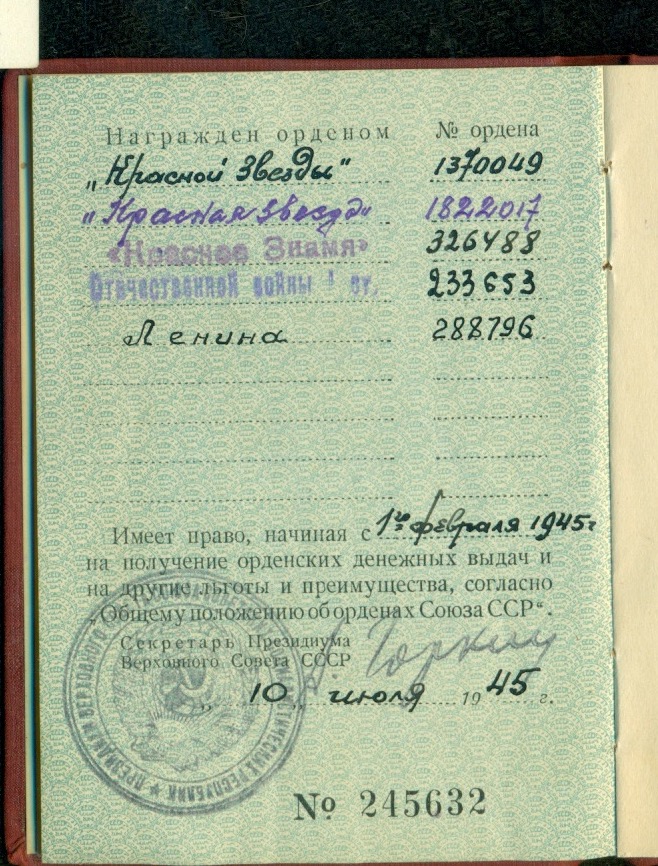 Награжден орденом № ордена
„Красной Звезды" 1370049
„Красная Звезда" 1822017
«Красное Знамя» 326488
Отечественной войны I ст. 233653
Ленина 288796
Имеет право, начиная с 1го февраля 1945г
на получение орденских денежных выдач и
на другие льготы и преимущества, согласно
„Общему положению об орденах Союза ССР“.
Секретарь Президиума
Верховного Совета СССР
А. Горкин
„10„ июля 1945 г.
ПРЕЗИДИУМ ВЕРХОВНОГО
РЕСПУБЛИК
№ 245632